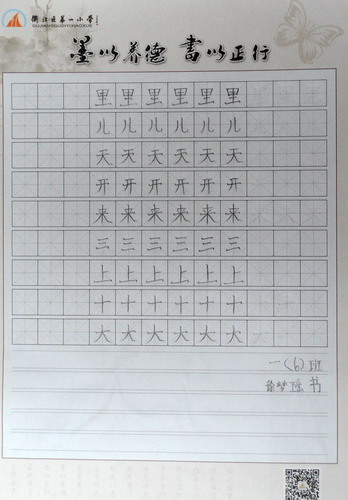 衢江区第一小学
墨以养德 書以正行
里里里里里里
儿儿儿儿儿儿
天天天天天天
开开开开开开
来来来来来来
三三三三三三
上上上上上上
十十十十十十
大大大大大大
一(6)班
徐梦瑶 书